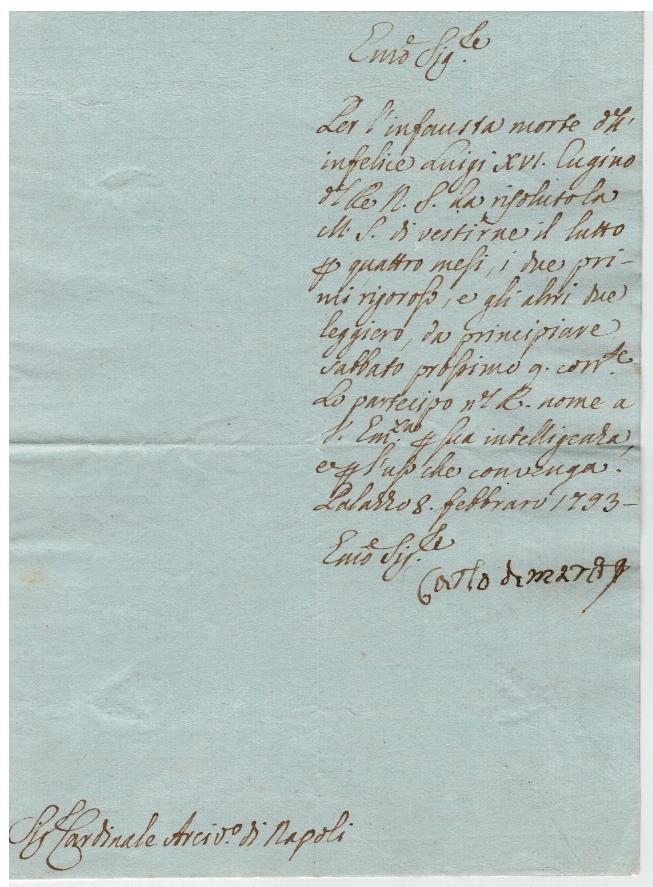 Emõ Sig.re
Per l'infausta morte dell'
infelice Luigi XVI. Cugino
del Re N. S. ha risoluto la
M. S. di vestirne il lutto
p quattro mesi, i due pri-
mi rigoroso, e gli altri due
leggiero, da principiare
sabbato prossimo 9. corr.te
Lo partecipo nel R. nome a
V. Em.za p sua intelligenza,
e p l'uso che convenga.
Palazzo 8. febbraro 1793-
Emõ Sig.re
Carlo de Marco
Sig.r Cardinale Arciv.o di Napoli